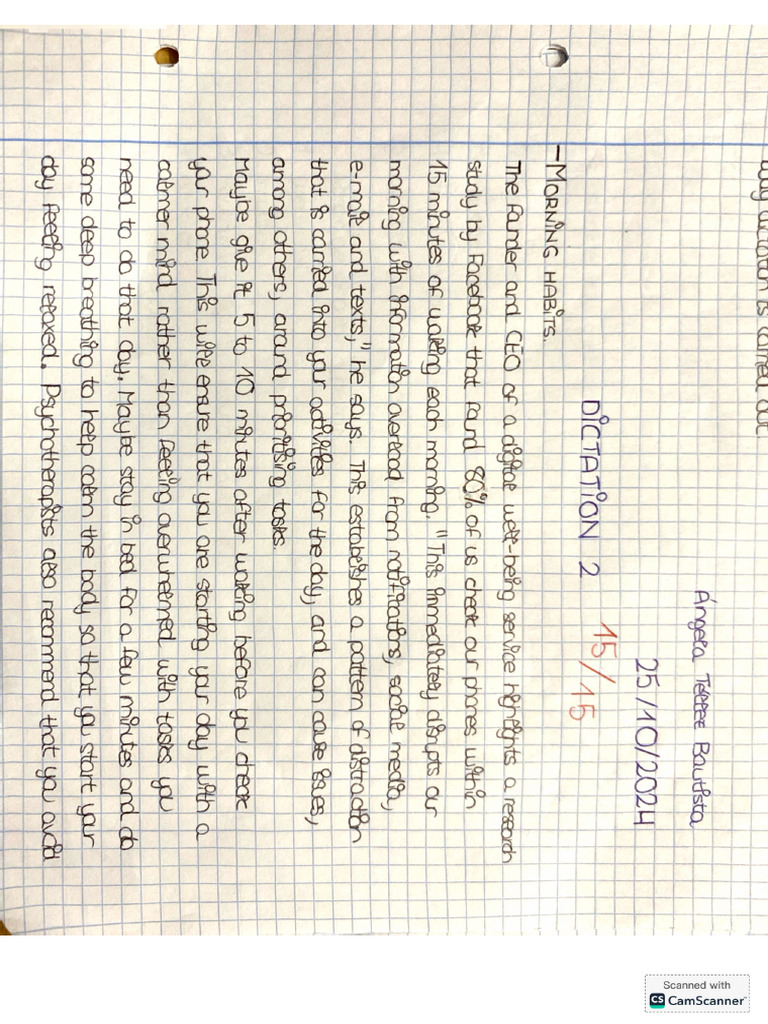 Ángela Téllez Bautista
25/10/2024
DICTATION 2 15/15
-MORNING HABITS.
The founder and CEO of a digital well-being service highlights a research
study by Facebook that found 80% of us check our phones within
15 minutes of waking each morning. "This immediately disrupts our
morning with information overload from notifications, social media,
e-mail and texts," he says. This establishes a pattern of distraction
that is carried into your activities for the day, and can cause issues,
among others, around prioritising tasks.
Maybe give it 5 to 10 minutes after waking before you check
your phone. This will ensure that you are starting your day with a
calmer mind rather than feeling overwhelmed with tasks you
need to do that day. Maybe stay in bed for a few minutes and do
some deep breathing to help calm the body so that you start your
day feeling relaxed. Psychotherapists also recommend that you avoid
Scanned with
CS CamScanner